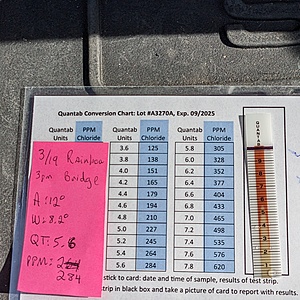 Quantab Conversion Chart: Lot #A3270A, Exp. 09/2025
Quantab Units PPM Chloride Quantab Units PPM Chloride Quantab Units PPM Chloride
3.6 125 5.8 305
3.8 138 6.0 328
4.0 151 6.2 352
4.2 165 6.4 377
4.4 179 6.6 404
4.6 194 6.8 433
4.8 210 7.0 465
5.0 227 7.2 498
5.2 245 7.4 535
5.4 264 7.6 576
5.6 284 7.8 620
3/19 Rainbow
3pm Bridge
A: 12°
W: 8.2°
QT: 5.6
PPM: 264
284
QUANTAB
9
8
7
6
5
4
3
2
1
stick to card: date and time of sample, results of test strip.
strip in black box and take a picture of card to report with results.